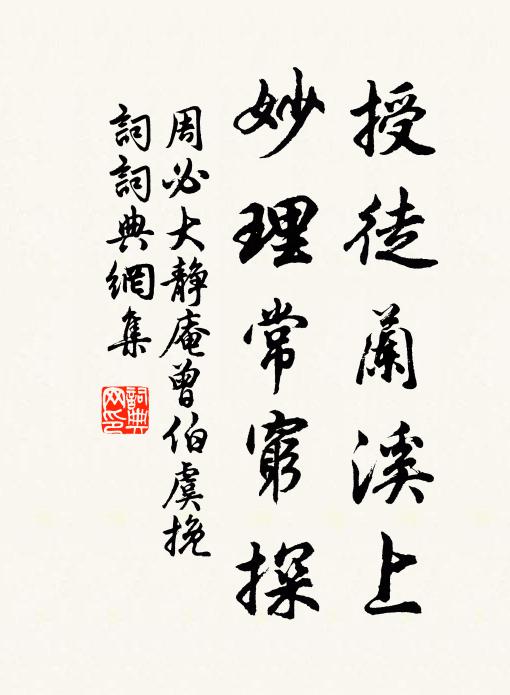 授徒蘭溪上
妙理常窮探
周必大靜庵曾伯虞挽
詞詞典網集
詞典
网印